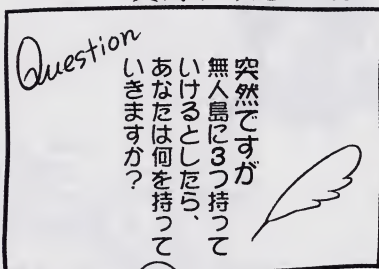 Question
突然ですが
無人島に3つ持って
いけるとしたら、
あなたは何を持って
いきますか？